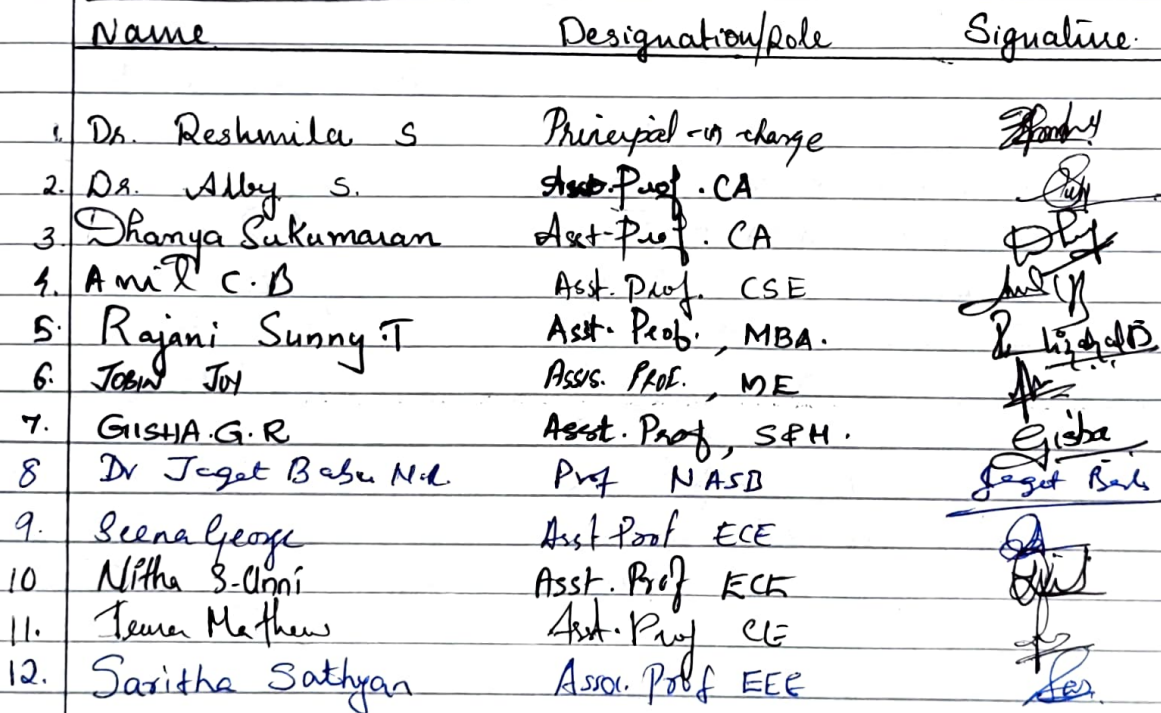 Name Designation/Role Signature.
1. Dr. Reshmila S Principal-in charge
2. Dr. Alby S. Asst. Prof. CA
3. Dhanya Sukumaran Asst-Prof. CA
4. Anil C.B Asst. Prof. CSE
5. Rajani Sunny.T Asst. Prof., MBA.
6. JOBIN JOY ASSIS. PROF., ME
7. GISHA.G.R Asst. Prof, S&H. Gisha
8 Dr Jaget Babu Prof NASB Jaget Babu
9. Seena George Asst Prof ECE
10 Nitha S-Unni Asst. Prof ECE
11. Mathew Asst. Prof CE
12. Saritha Sathyan Assoc. Prof EEE